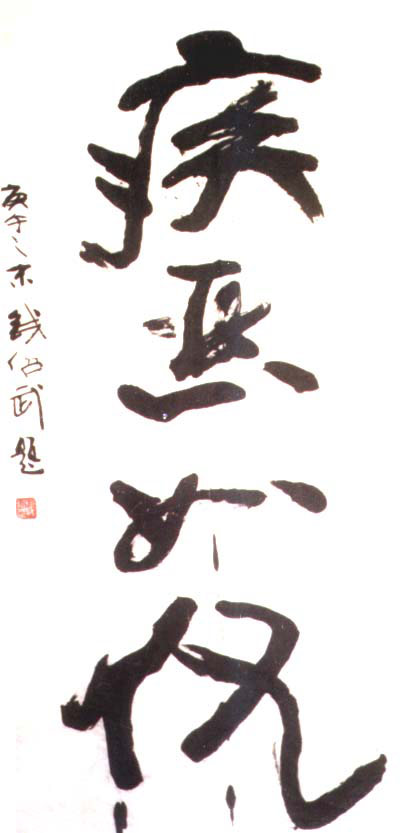 疾恶如仇
庚午之末 钱绍武题